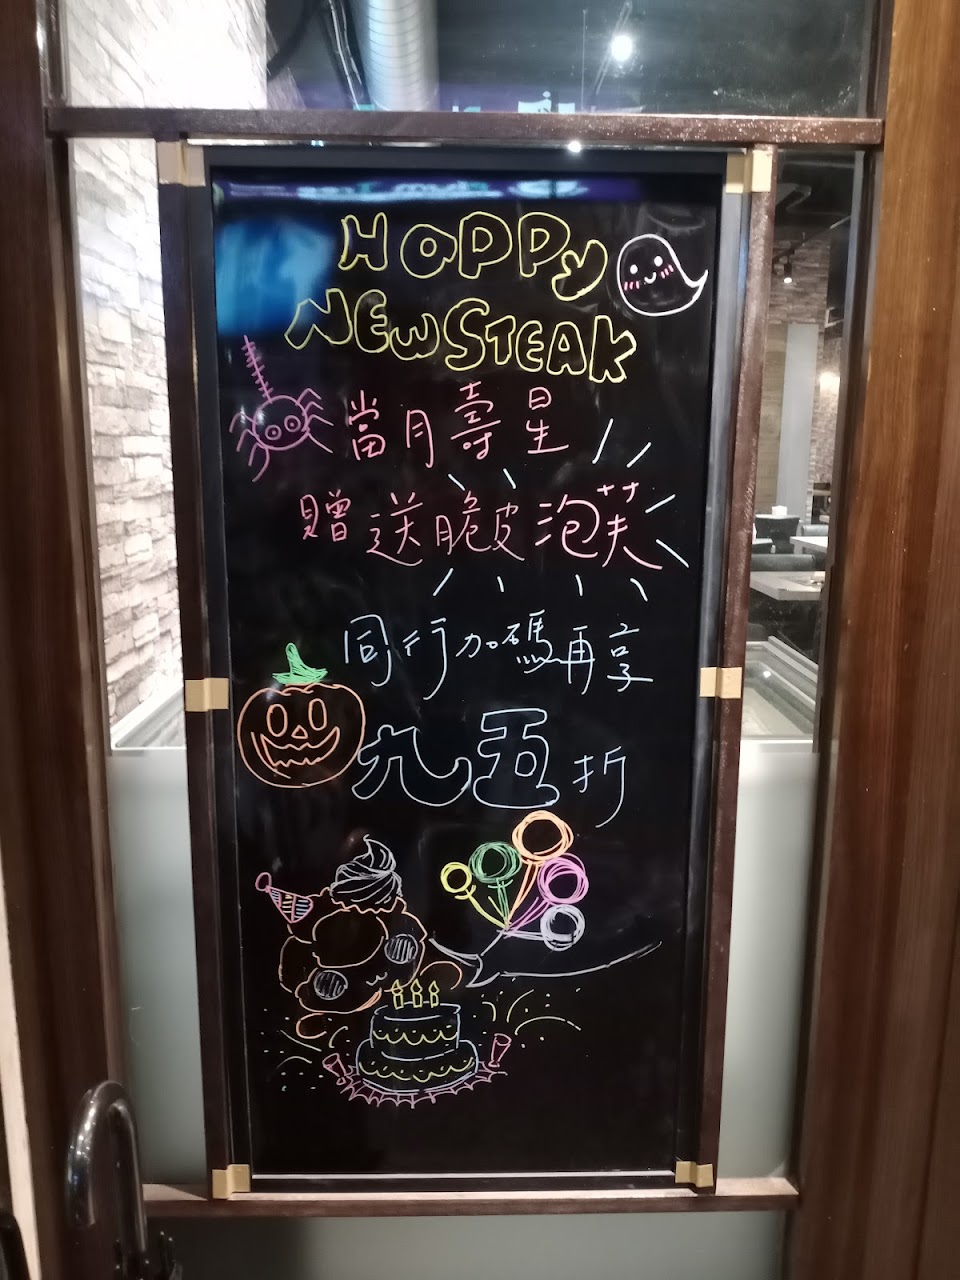 HAPPY
NEW STEAK
當月壽星
贈送脆皮泡芙
同行加碼再享
九五折